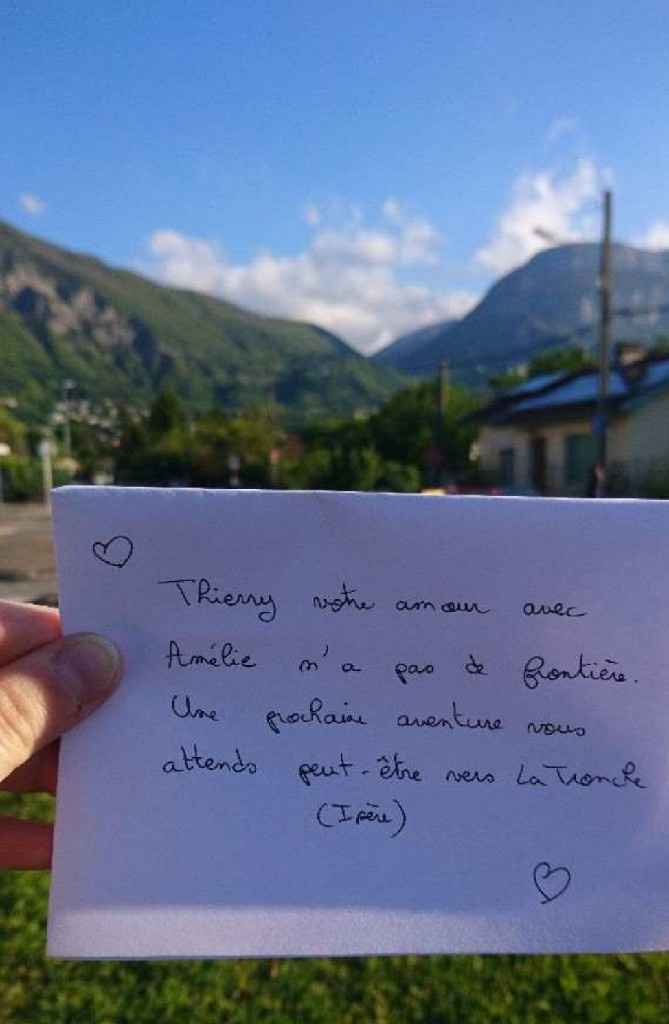 Thierry votre amour avec
Amélie n'a pas de frontière.
Une prochaine aventure vous
attends peut-être vers La Tronche
(Isère)